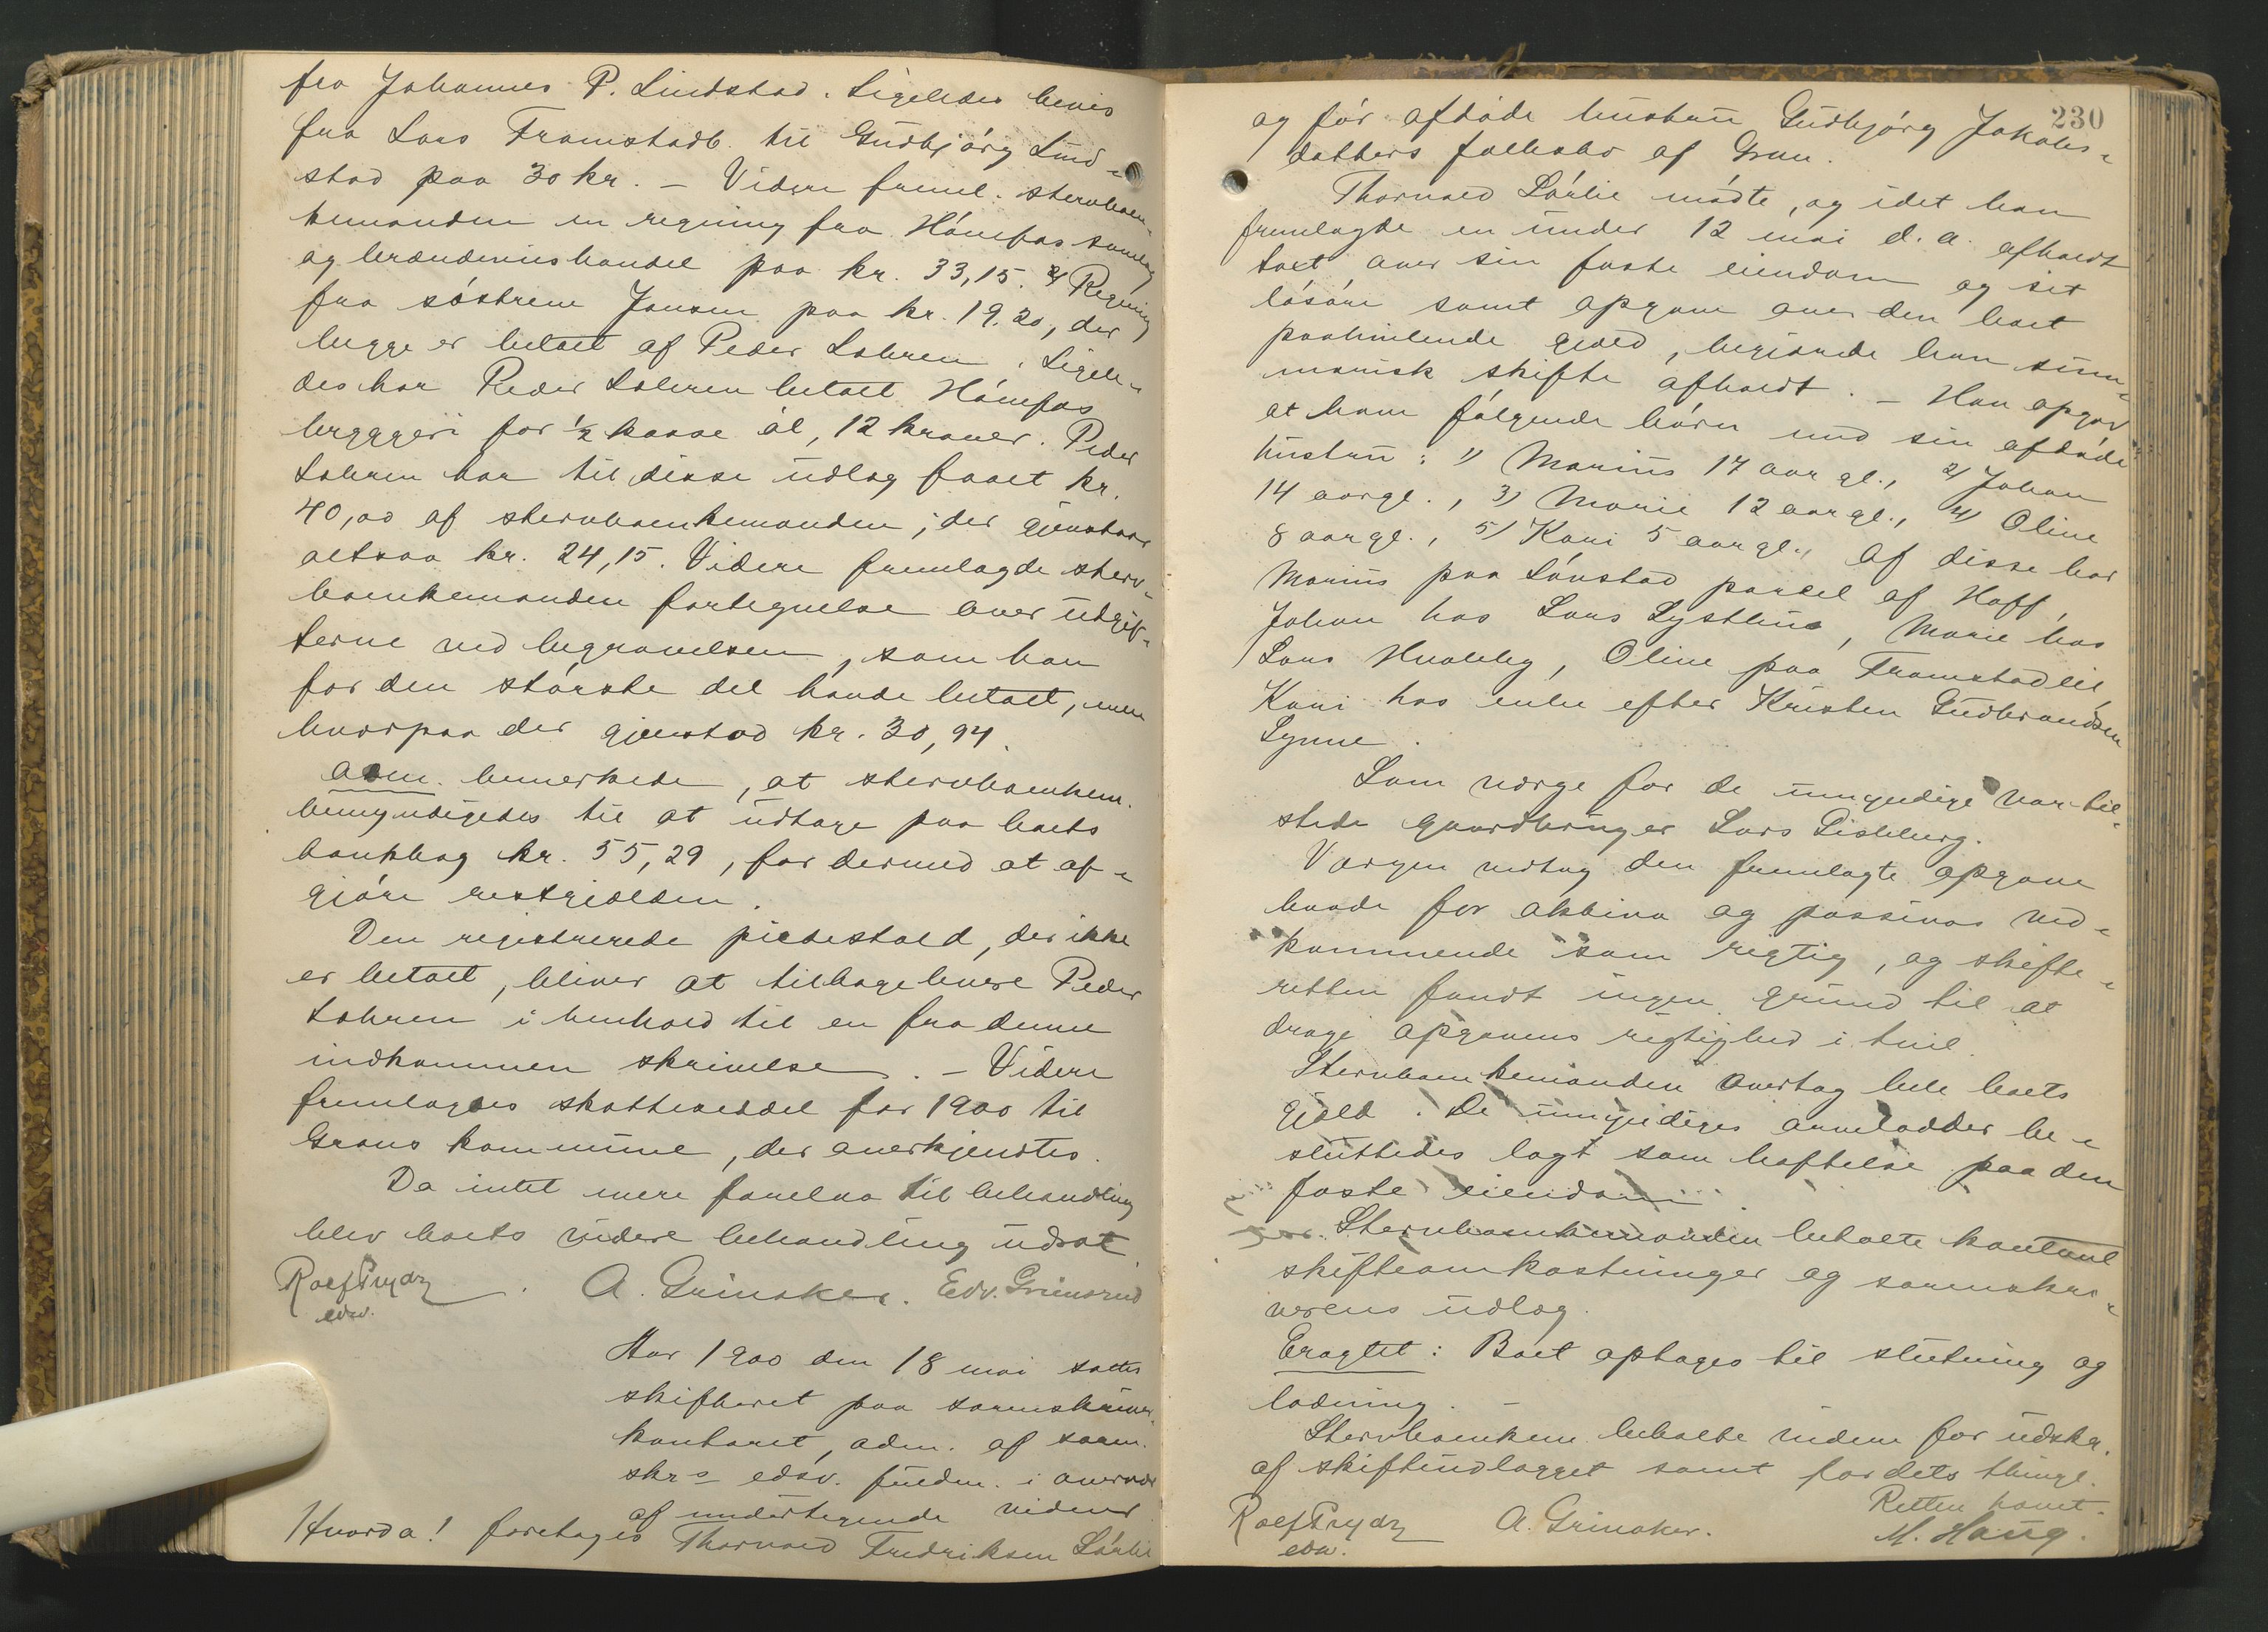 fra Johannes P. Lindstad. Ligeledes bevis
fra Lars Framstadb. til Gudbjørg Lind-
stad paa 30 kr. – Videre freml. stervboen-
kemanden en regning fra Hønefos samlag
og brændevinshandel paa kr. 33,15. 2) Regning
fra søstrene Jansen paa kr. 19.20, der
begge er betalt af Peder Lohren. Ligele-
des har Peder Lohren betalt Hønefos
bryggeri for ½ kasse øl, 12 kroner. Peder
Lohren har til disse udlæg faaet kr.
40,00 af stervboenkemanden; der gjenstaar
altsaa kr. 24,15. Videre fremlagde sterv-
boenkemanden fortegnelse over udgif-
terne ved begravelsen, som han
for den største del havde betalt, men
hvorpaa der gjenstod kr. 30,94.
Adm. bemerkede, at stervboenkem.
bemyndigedes til at udtage paa boets
bankbog kr. 55,29, for dermed at af-
gjøre restgjælden.
Den registrerede piedestald, der ikke
er betalt, bliver at tilbagelevere Peder
Lohren i henhold til en fra denne
indkommen skrivelse. – Videre
fremlagdes skatteseddel for 1900 til
Grans kommune, der anerkjendtes.
Da intet mere forelaa til behandling
blev boets videre behandling udsat.
Rolf Prydz A. Grinaker. Edv. Grinsrud
edsv.
Aar 1900 den 18 mai sattes
skifteret paa sorenskriver-
kontoret, adm. af soren-
skrs edsv. fuldm. i overvær
af undertegnede vidner
Hvorda! foretages Thorvald Fredriksen Lørlie
230
og før afdøde hustru Gudbjørg Jakobs-
datters fællesbo af Gran.
Thorvald Lørlie mødte, og idet han
fremlagde en under 12 mai d. a. afholdt
taxt over sin faste eiendom og sit
løsøre samt opgave over den boet
paahvilende gjæld, begjærede han sum-
marisk skifte afholdt. – Han opgav
at have følgende børn med sin afdøde
hustru: 1) Marius 17 aar gl., 2) Johan
14 aar gl., 3) Marie 12 aar gl., 4) Oline
8 aar gl., 5) Kari 5 aar gl., Af disse bor
Marius paa Lønstad parcel af Hoff,
Johan hos Lars Lysthus, Marie hos
Lars Hvaleby, Oline paa Framstadeie
Kari hos enke efter Kristen Gudbrandsen
Lynne.
Som værge for de umyndige var til-
stede gaardbruger Lars Dieseberg.
Værgen vedtog den fremlagte opgave
baade for aktiva og passivas ved-
kommende som rigtig, og skifte-
retten fandt ingen grund til at
drage opgavens rigtighed i tvil.
Stervboenkemanden overtog hele boets
gjæld. De umyndiges arvelodder be-
sluttedes lagt som heftelse paa den
faste eiendom.
Stervboenkemanden betalte kontant
skifteomkostninger og sorenskri-
verens udlæg.
Eragtet: Boet optages til slutning og
lodning. –
Stervboenkem. betalte videre for udskr.
af skifteudlægget samt for dets thingl.
Retten hævet.
Rolf Prydz A. Grinaker. M. Haug.
edsv.